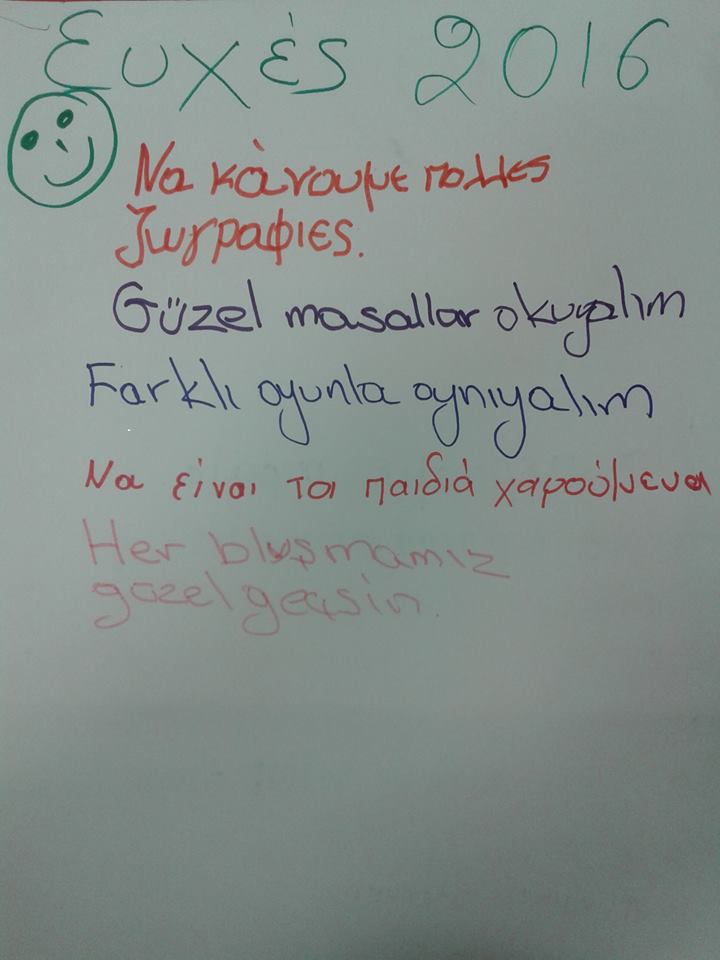 Ευχές 2016
Να κάνουμε πολλες
ζωγραφιες.
Güzel masallar okuyalım
Farklı oyunla oynıyalım
Να είναι τα παιδιά χαρούμενα
Her bluşmamız
güzel geçsin.